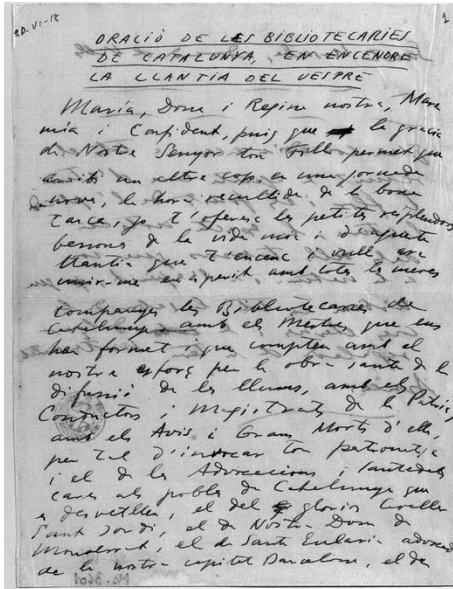 20-VI-18
1
ORACIÓ DE LES BIBLIOTECARIES
DE CATALUNYA, EN ENCENDRE
LA LLANTIA DEL VESPRE
Maria, Dona i Regina nostra, Mare
mia i Confident, puig que la gracia
de Nostre Senyor ton Fill permet que
arribi un altre cop, en una jornada
nova, la hora recullida de la bona
tasca, jo t'ofereic les petites resplendors
bessones de la vida mia i d'aquesta
llantia que t'encenc i vull
unir-me en esperit amb totes les meves
companyes les Bibliotecaries de
Catalunya amb els Mestres que ens
han format i que compten amb el
nostre esforç per la obra santa de la
difusió de les llums, amb els
Conductors i Magistrats de la Patria,
amb els Avis i Grans Morts d'ella,
per tal d'invocar ton patronatge
i el de les Advocacions i Santedats
cares als pobles de Catalunya que
es desvetllen, el del gloriós Cavaller
Sant Jordi, el de Nostra Dona de
Montserrat, el de Santa Eularia advocada
de la nostra capital Barcelona, el de
Ms. 3401